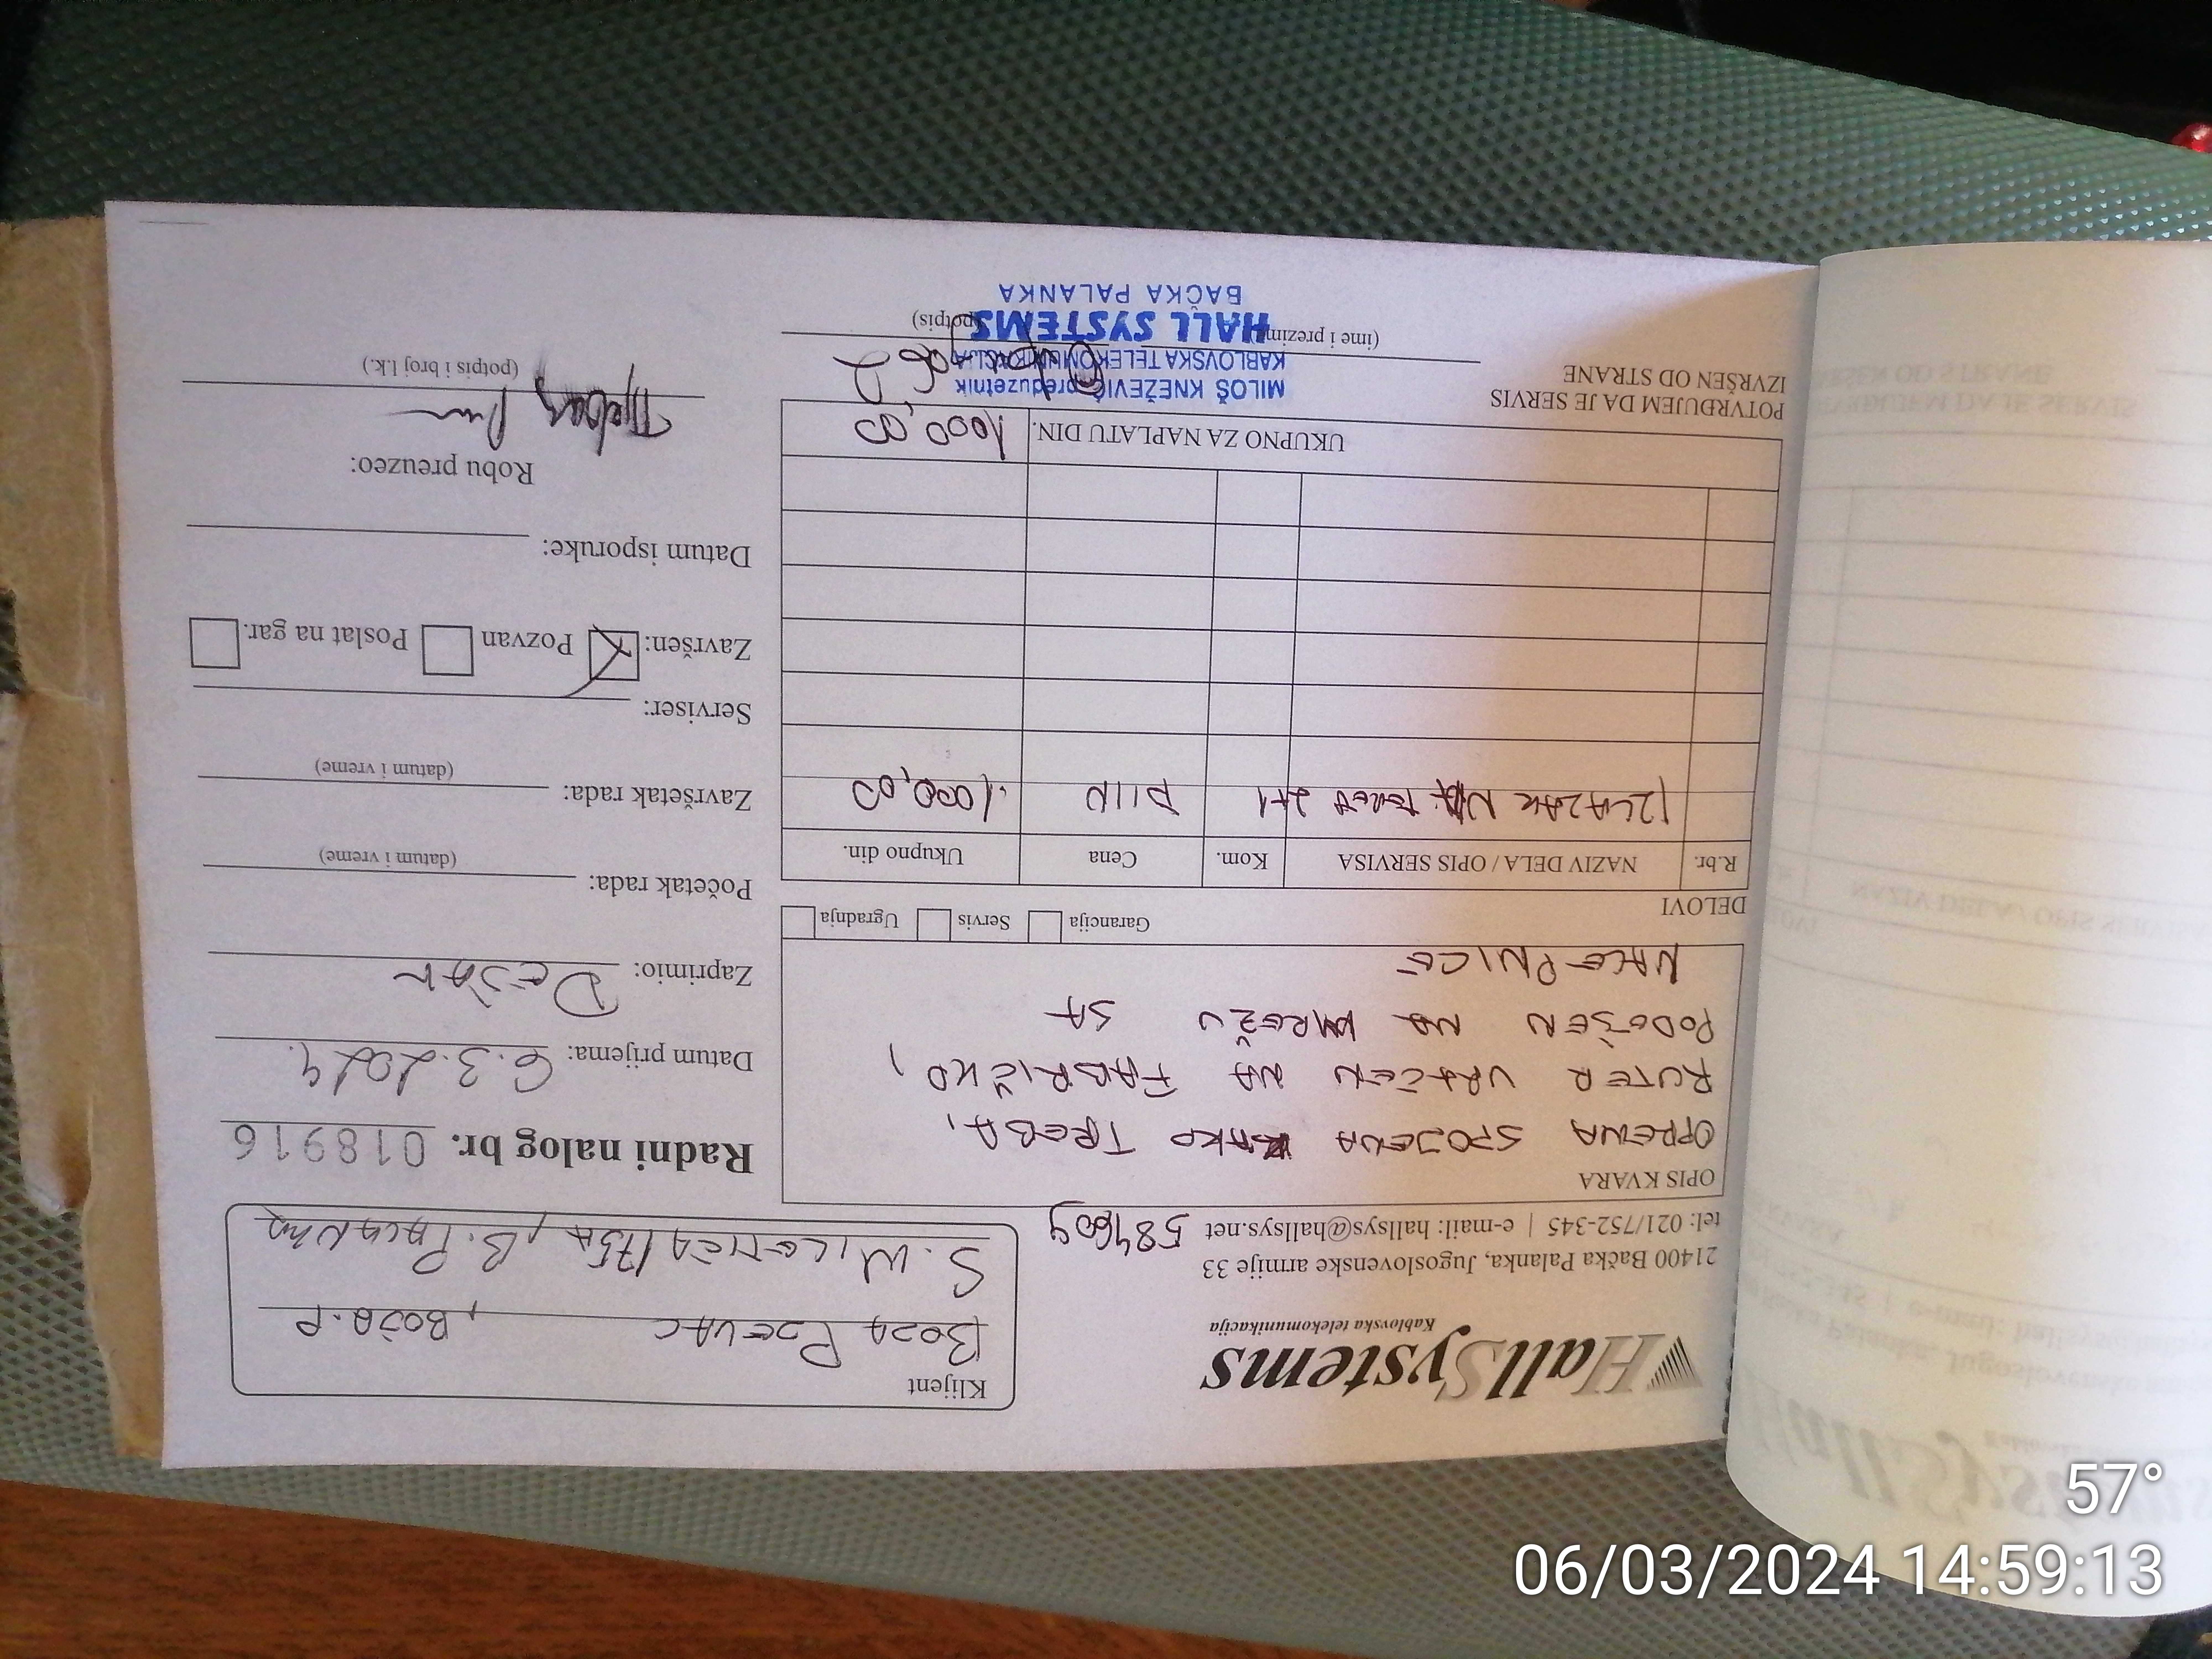 HallSystems
Kablovska telekomunikacija
21400 Bačka Palanka, Jugoslovenske armije 33
tel: 021/752-345 | e-mail: hallsys@hallsys.net
Klijent
BOZA
, BOŽA.P
S. MILETIĆA
OPIS KVARA
OPREMA SPOJENA KAKO TREBA,
RUTER VRAĆEN NA FABRIČKO,
PODEŠEN NA MREŽU SA
NALEPNICE
Radni nalog br. 018916
Datum prijema: 6.3.2024.
Zaprimio: DEJAN
Početak rada:
(datum i vreme)
Završetak rada:
(datum i vreme)
Serviser:
Završen: Pozvan Poslat na gar.
Datum isporuke:
Robu preuzeo:
(potpis i broj l.k.)
DELOVI
Garancija Servis Ugradnja
R.br. NAZIV DELA / OPIS SERVISA Kom. Cena Ukupno din.
IZLAZAK NA TEREN 1000,00
UKUPNO ZA NAPLATU DIN. 1000,00
POTVRĐUJEM DA JE SERVIS
IZVRŠEN OD STRANE
(ime i prezime)
(potpis)
MILOŠ KNEŽEVIĆ preduzetnik
KABLOVSKA TELEKOMUNIKACIJA
HALL SYSTEMS
BAČKA PALANKA
57°
06/03/2024 14:59:13